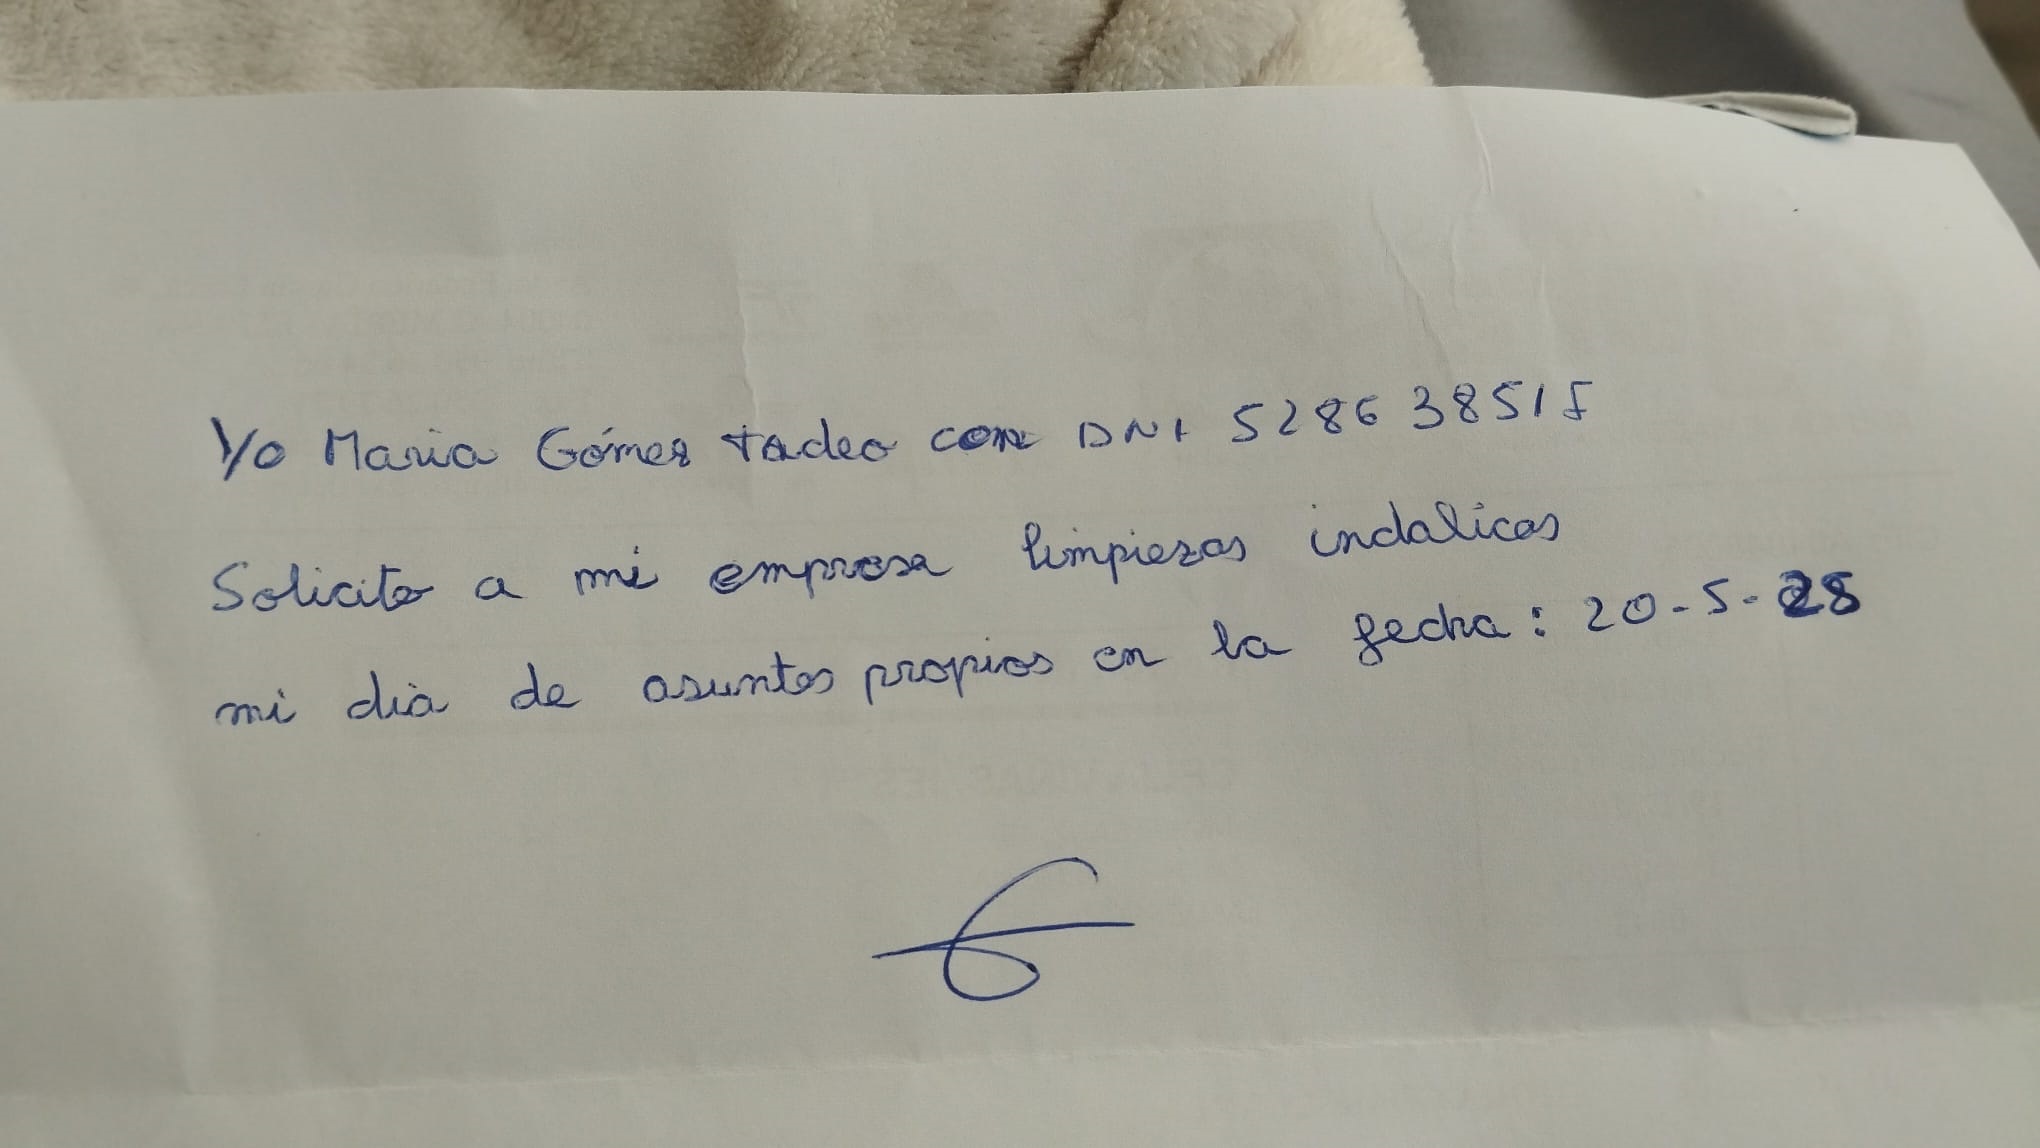 Yo Maria Gómez tadeo con DNI 52863851J
Solicito a mi empresa limpiezas indalicas
mi dia de asuntos propios en la fecha: 20-5-25